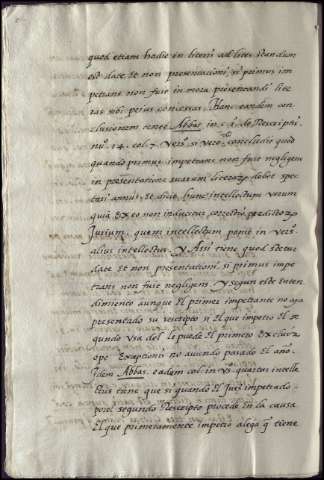 quod etiam hodie in literis ad lites standum
est date et non presentationi, si primus im
petrans non fuit in mora presentandi lite
ras sibi prius concessas. Hanc eandem con
clusionem tenet Abbas in c. de Rescriptis
nu. 14. col. 7. vers. si vero concludit quod
quando primus impetrans non fuit negligens
in presentatione suarum literarum debet spec
tari annus, et dicit hunc intellectum verum
quia ex eo non inducitur correctio predictorum
Jurium, quem intellectum ponit in vers.
alius intellectus. Y Assi tiene quod stetur
date et non presentationi si primus impe
trans non fuit negligens. y segun este enten
dimiento aunque el primer impetrante no aya
presentado su rescripto si el que impetro el se
gundo usa del le puede el primero excluir
ope exceptionis no auiendo pasado el año.
Idem Abbas eadem col. in vers. quartus intelle
ctus tiene que si quando el Juez impetrado
por el segundo Rescripto procede en la causa
el que primeramente impetro alega q tiene